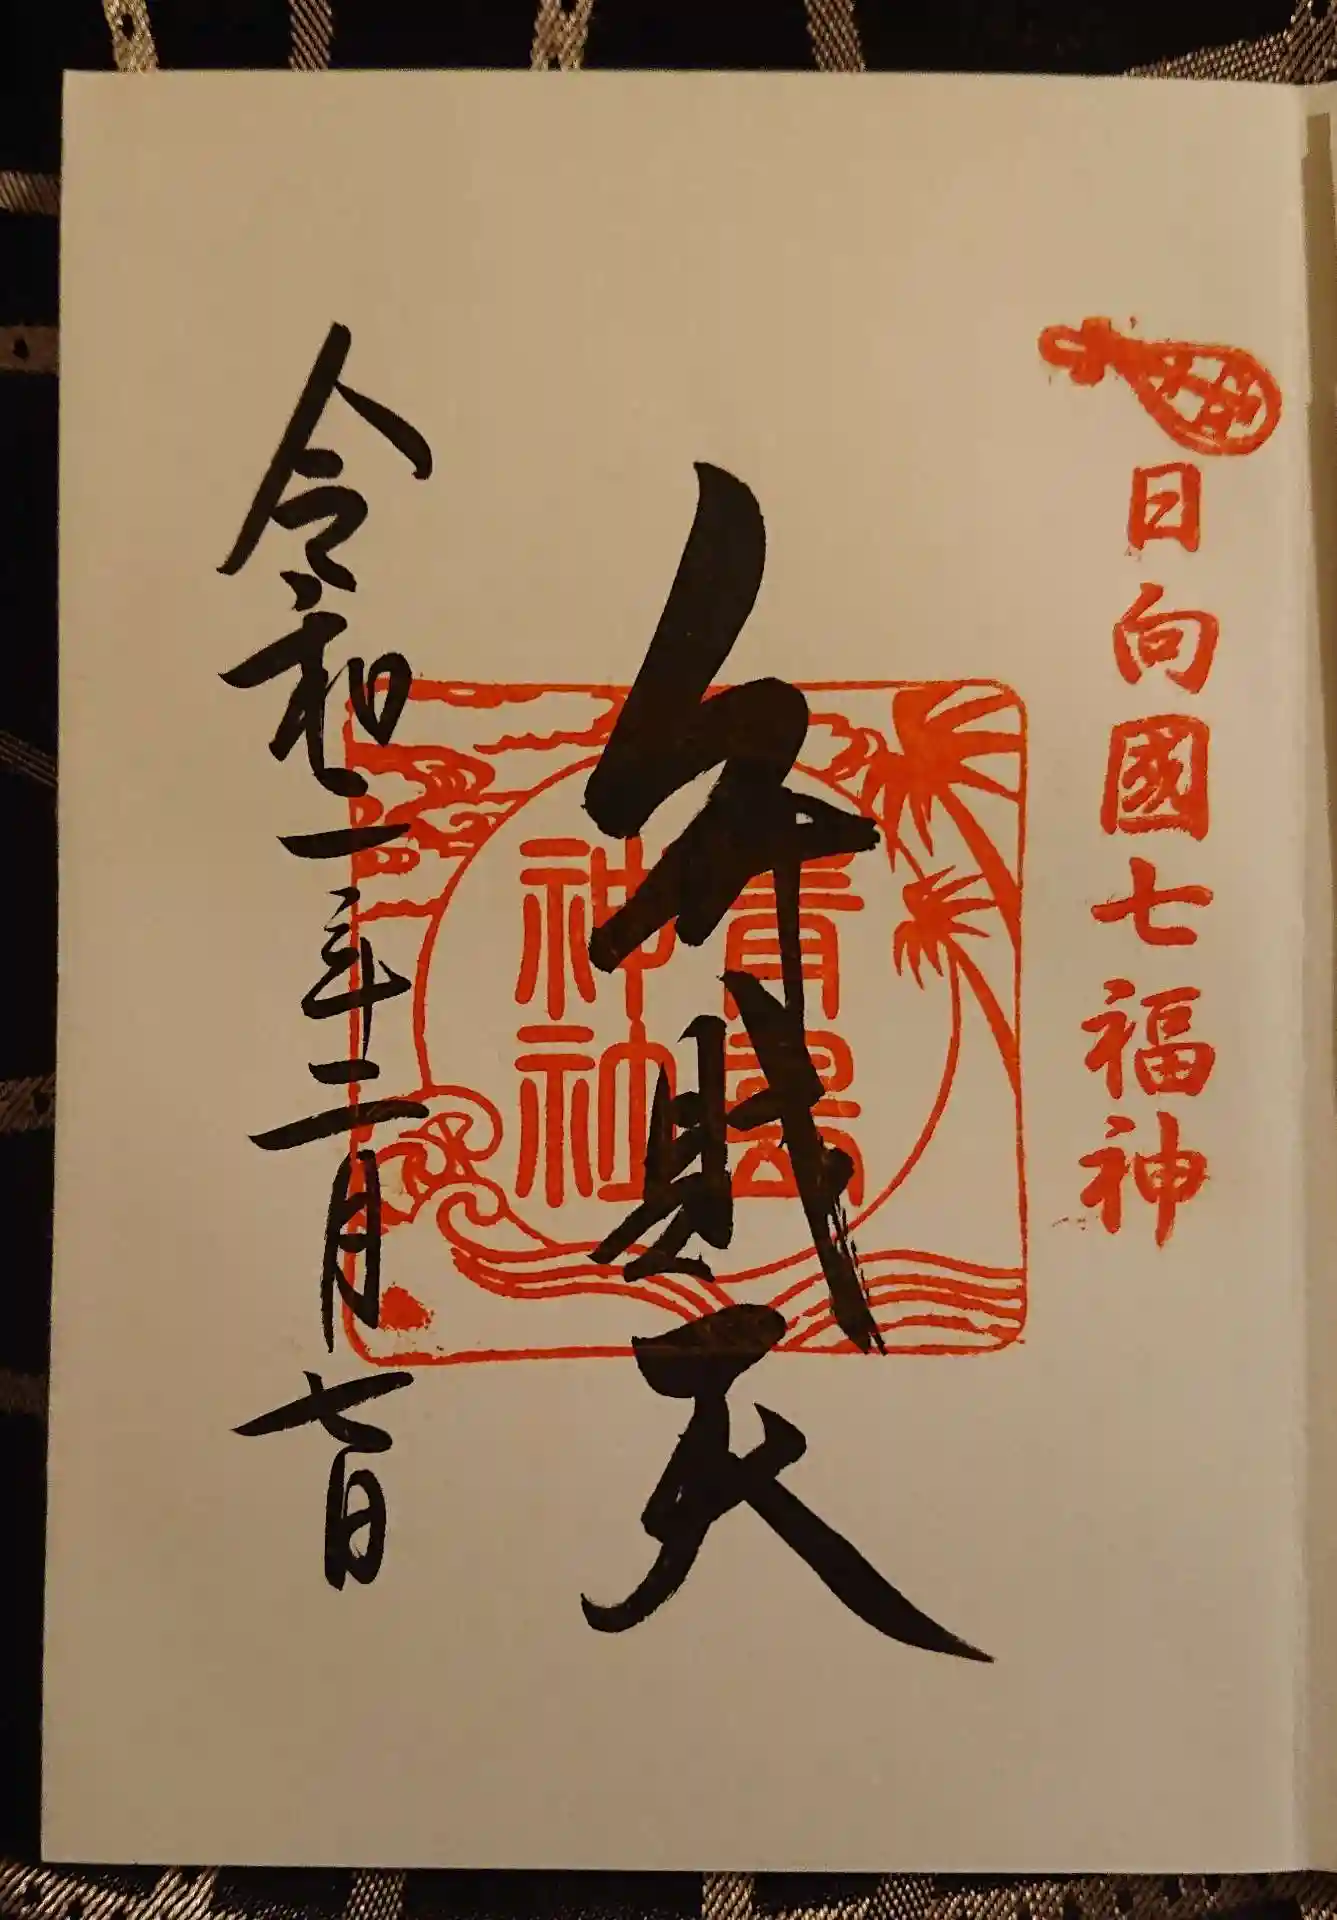 日向國七福神
弁財天
青島神社
令和二年二月七日